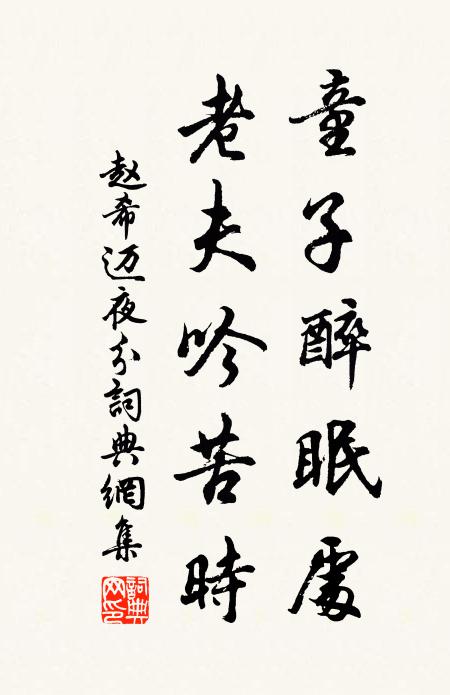 童子醉眠處
老夫吟苦時
赵希迈夜分詞典網集
詞典网印